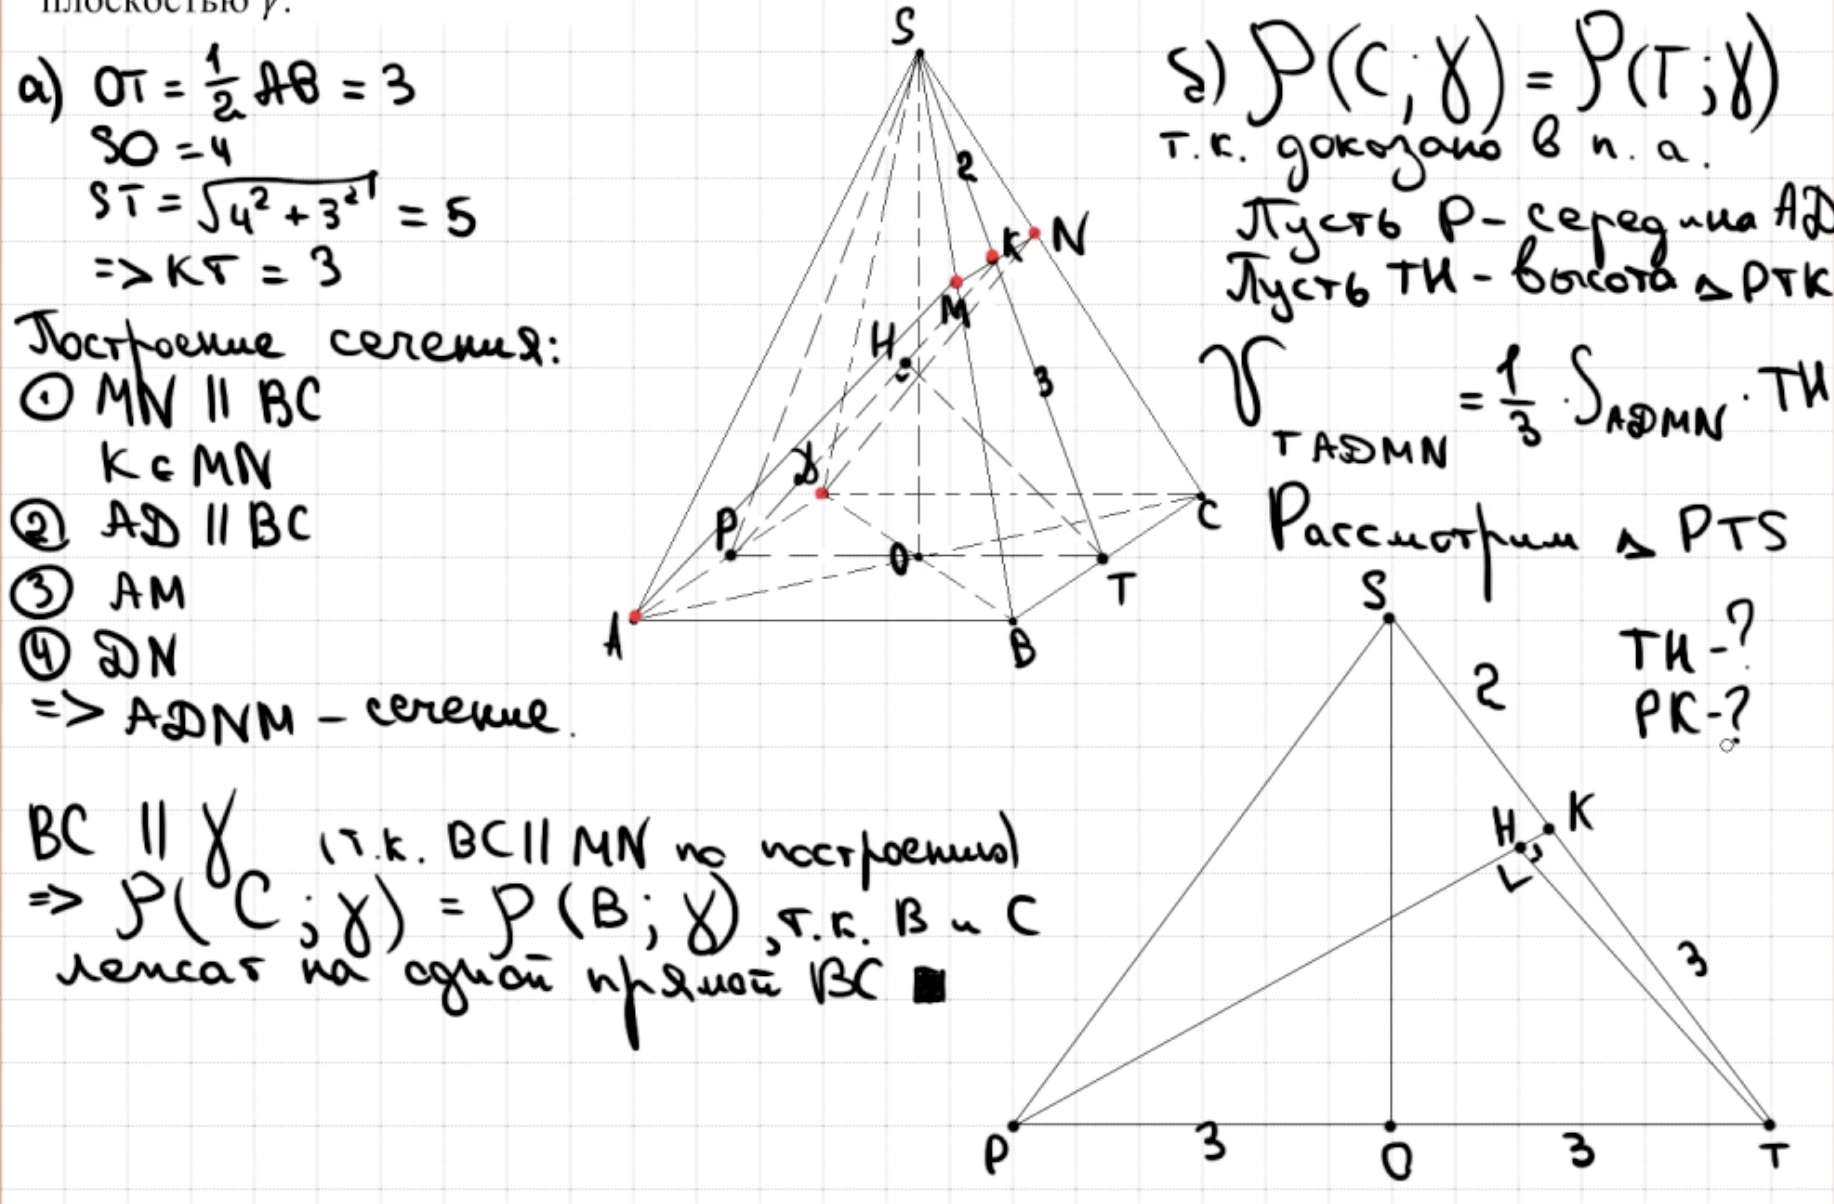 плоскостью γ.
а) OT = 1/2 AB = 3
SO = 4
ST = √(4² + 3²) = 5
=> KT = 3
Построение сечения:
① MN || BC
K ∈ MN
② AD || BC
③ AM
④ DN
=> ADNM – сечение.
BC || γ (т.к. BC || MN по построению)
=> ρ(C; γ) = ρ(B; γ), т.к. B и C
лежат на одной прямой BC ■
S
2
K
N
M
H
3
D
P
O
C
T
A
B
б) ρ(C; γ) = ρ(T; γ)
т.к. доказано в п. а.
Пусть P – середина AD
Пусть TH – высота △ PTK
V TADMN = 1/3 · S ADMN · TH
Рассмотрим △ PTS
S
TH - ?
2
PK - ?
H
K
3
P
3
O
3
T